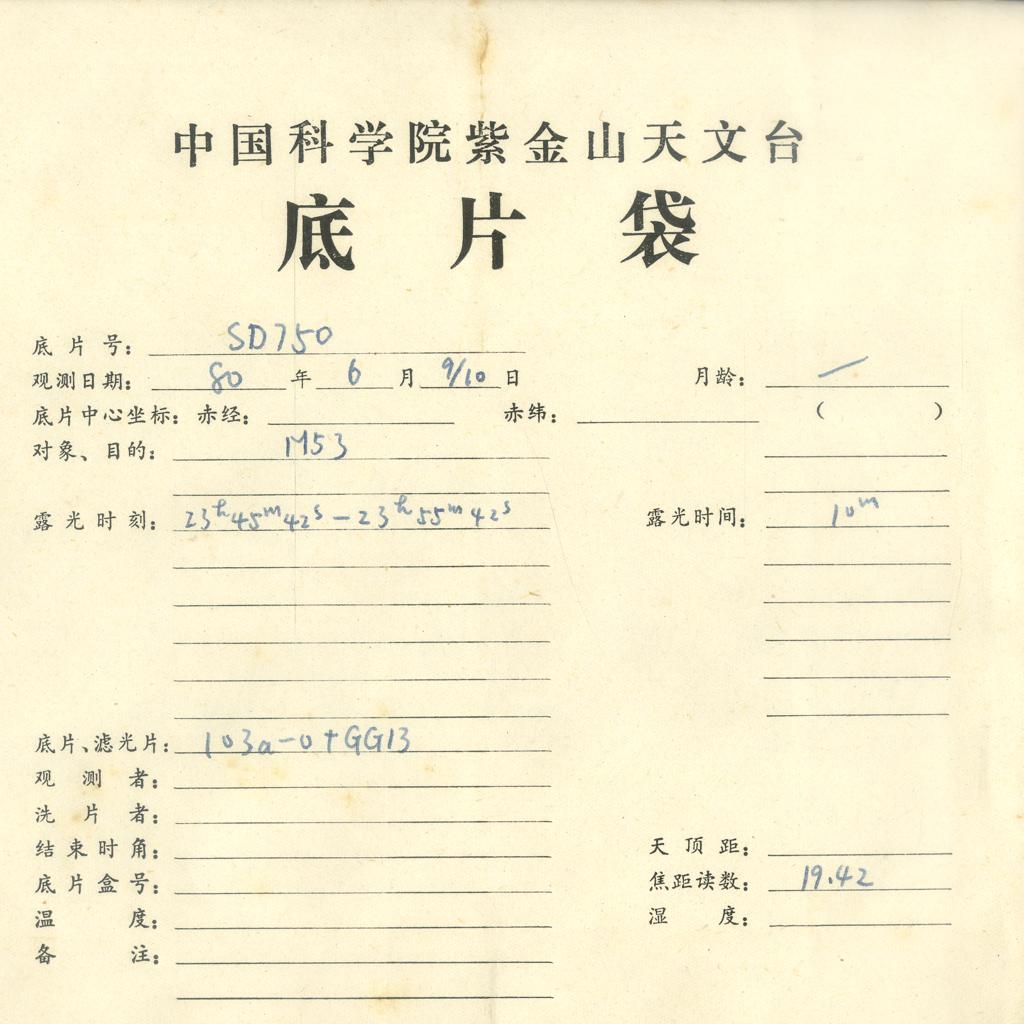 中国科学院紫金山天文台
底片袋
底片号: SD750
观测日期: 80 年 6 月 9/10 日 月龄: —
底片中心坐标: 赤经: 赤纬: ( )
对象、目的: M53
露光时刻: 23ʰ45ᵐ42ˢ — 23ʰ55ᵐ42ˢ 露光时间: 10ᵐ
底片、滤光片: 103a-0+GG13
观测者:
洗片者:
结束时角: 天顶距:
底片盒号: 焦距读数: 19.42
温度: 湿度:
备注: